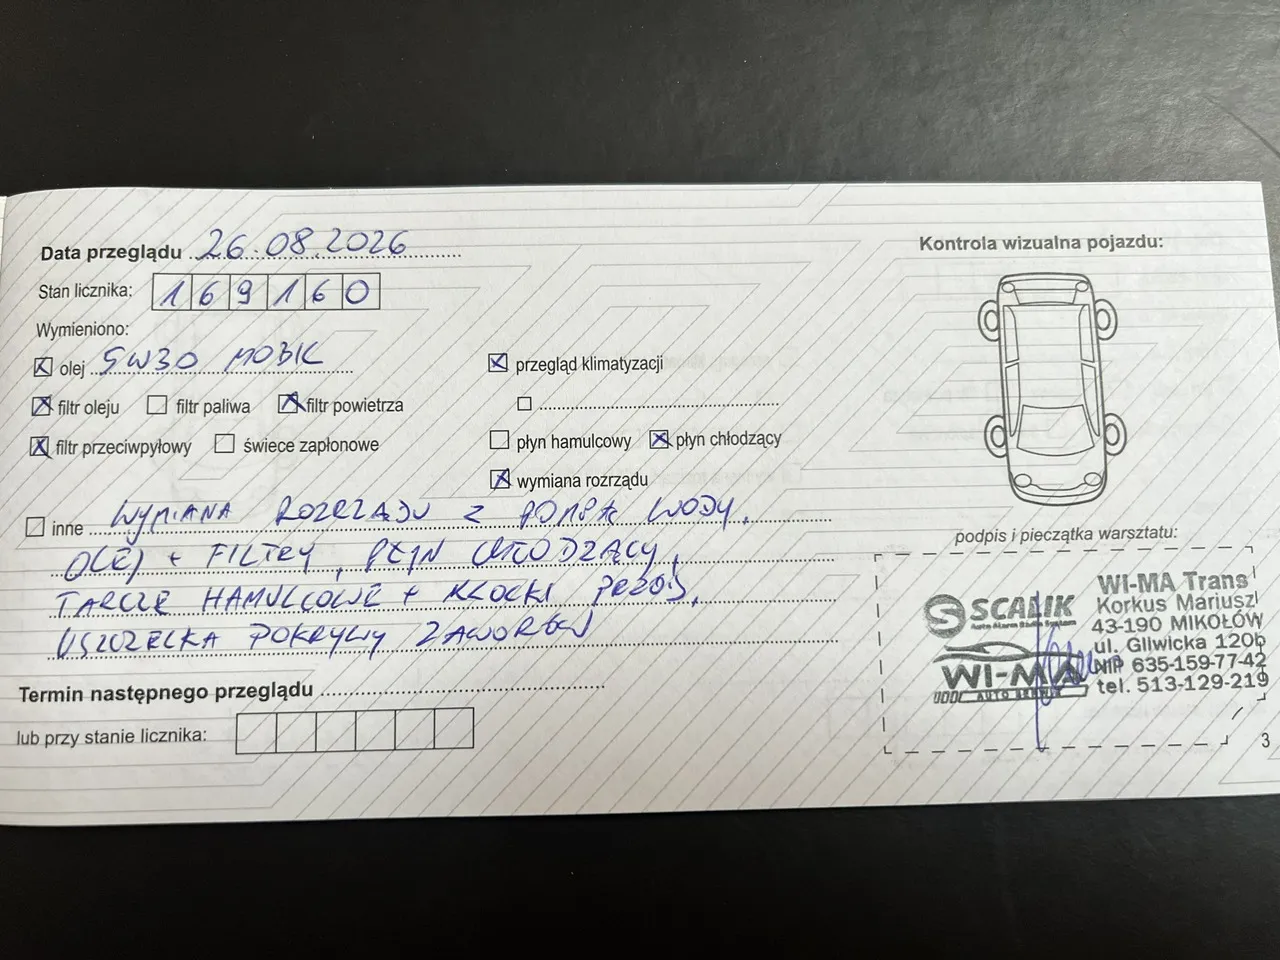 Data przeglądu 26.08.2026
Stan licznika: 169160
Wymieniono:
olej 5W30 MOBIL
przegląd klimatyzacji
filtr oleju filtr paliwa filtr powietrza
filtr przeciwpyłowy świece zapłonowe
płyn hamulcowy płyn chłodzący
wymiana rozrządu
inne WYMIANA ROZRZĄDU Z POMPĄ WODY,
OLEJ + FILTRY, PŁYN CHŁODZĄCY,
TARCZE HAMULCOWE + KLOCKI PRZÓD,
USZCZELKA POKRYWY ZAWORÓW
Termin następnego przeglądu
lub przy stanie licznika:
Kontrola wizualna pojazdu:
podpis i pieczątka warsztatu:
SCALIK
WI-MA
WI-MA Trans
Korkus Mariusz
43-190 MIKOŁÓW
ul. Gliwicka 120b
NIP 635-159-77-42
tel. 513-129-219
3